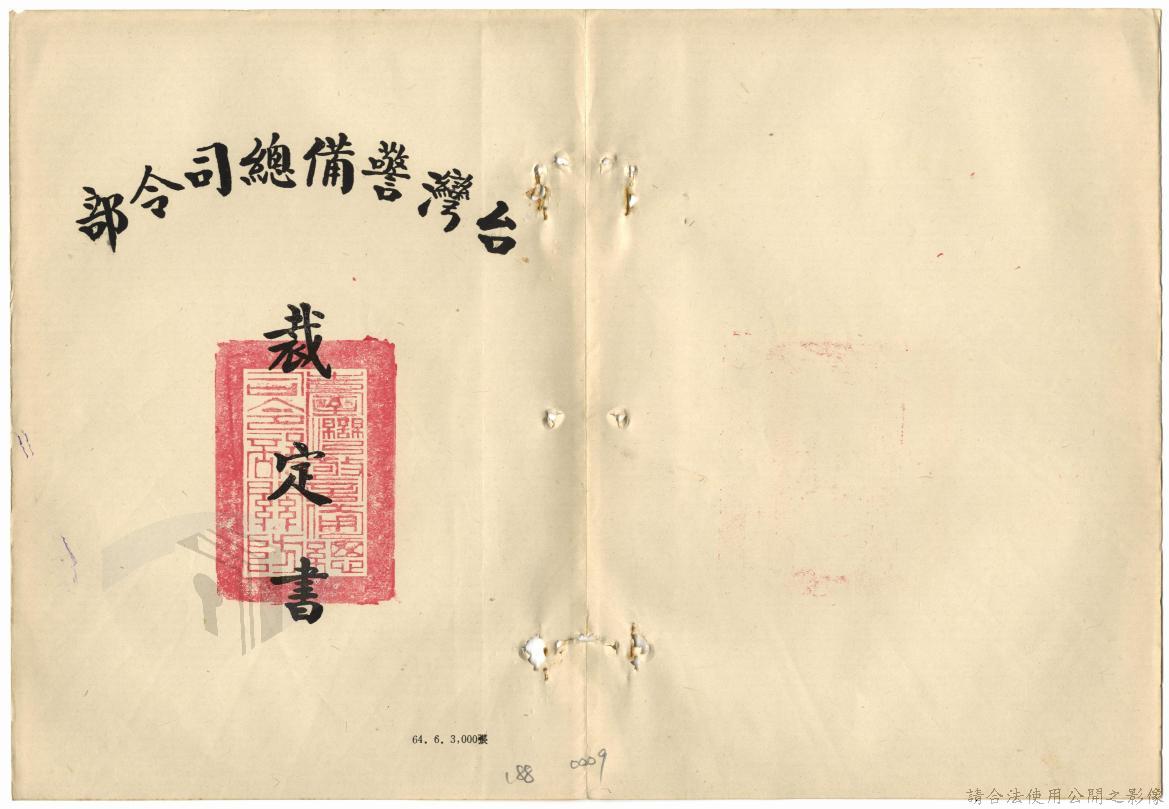 台灣警備總司令部
裁定書
64. 6. 3,000張
188 0009
請合法使用公開之影像